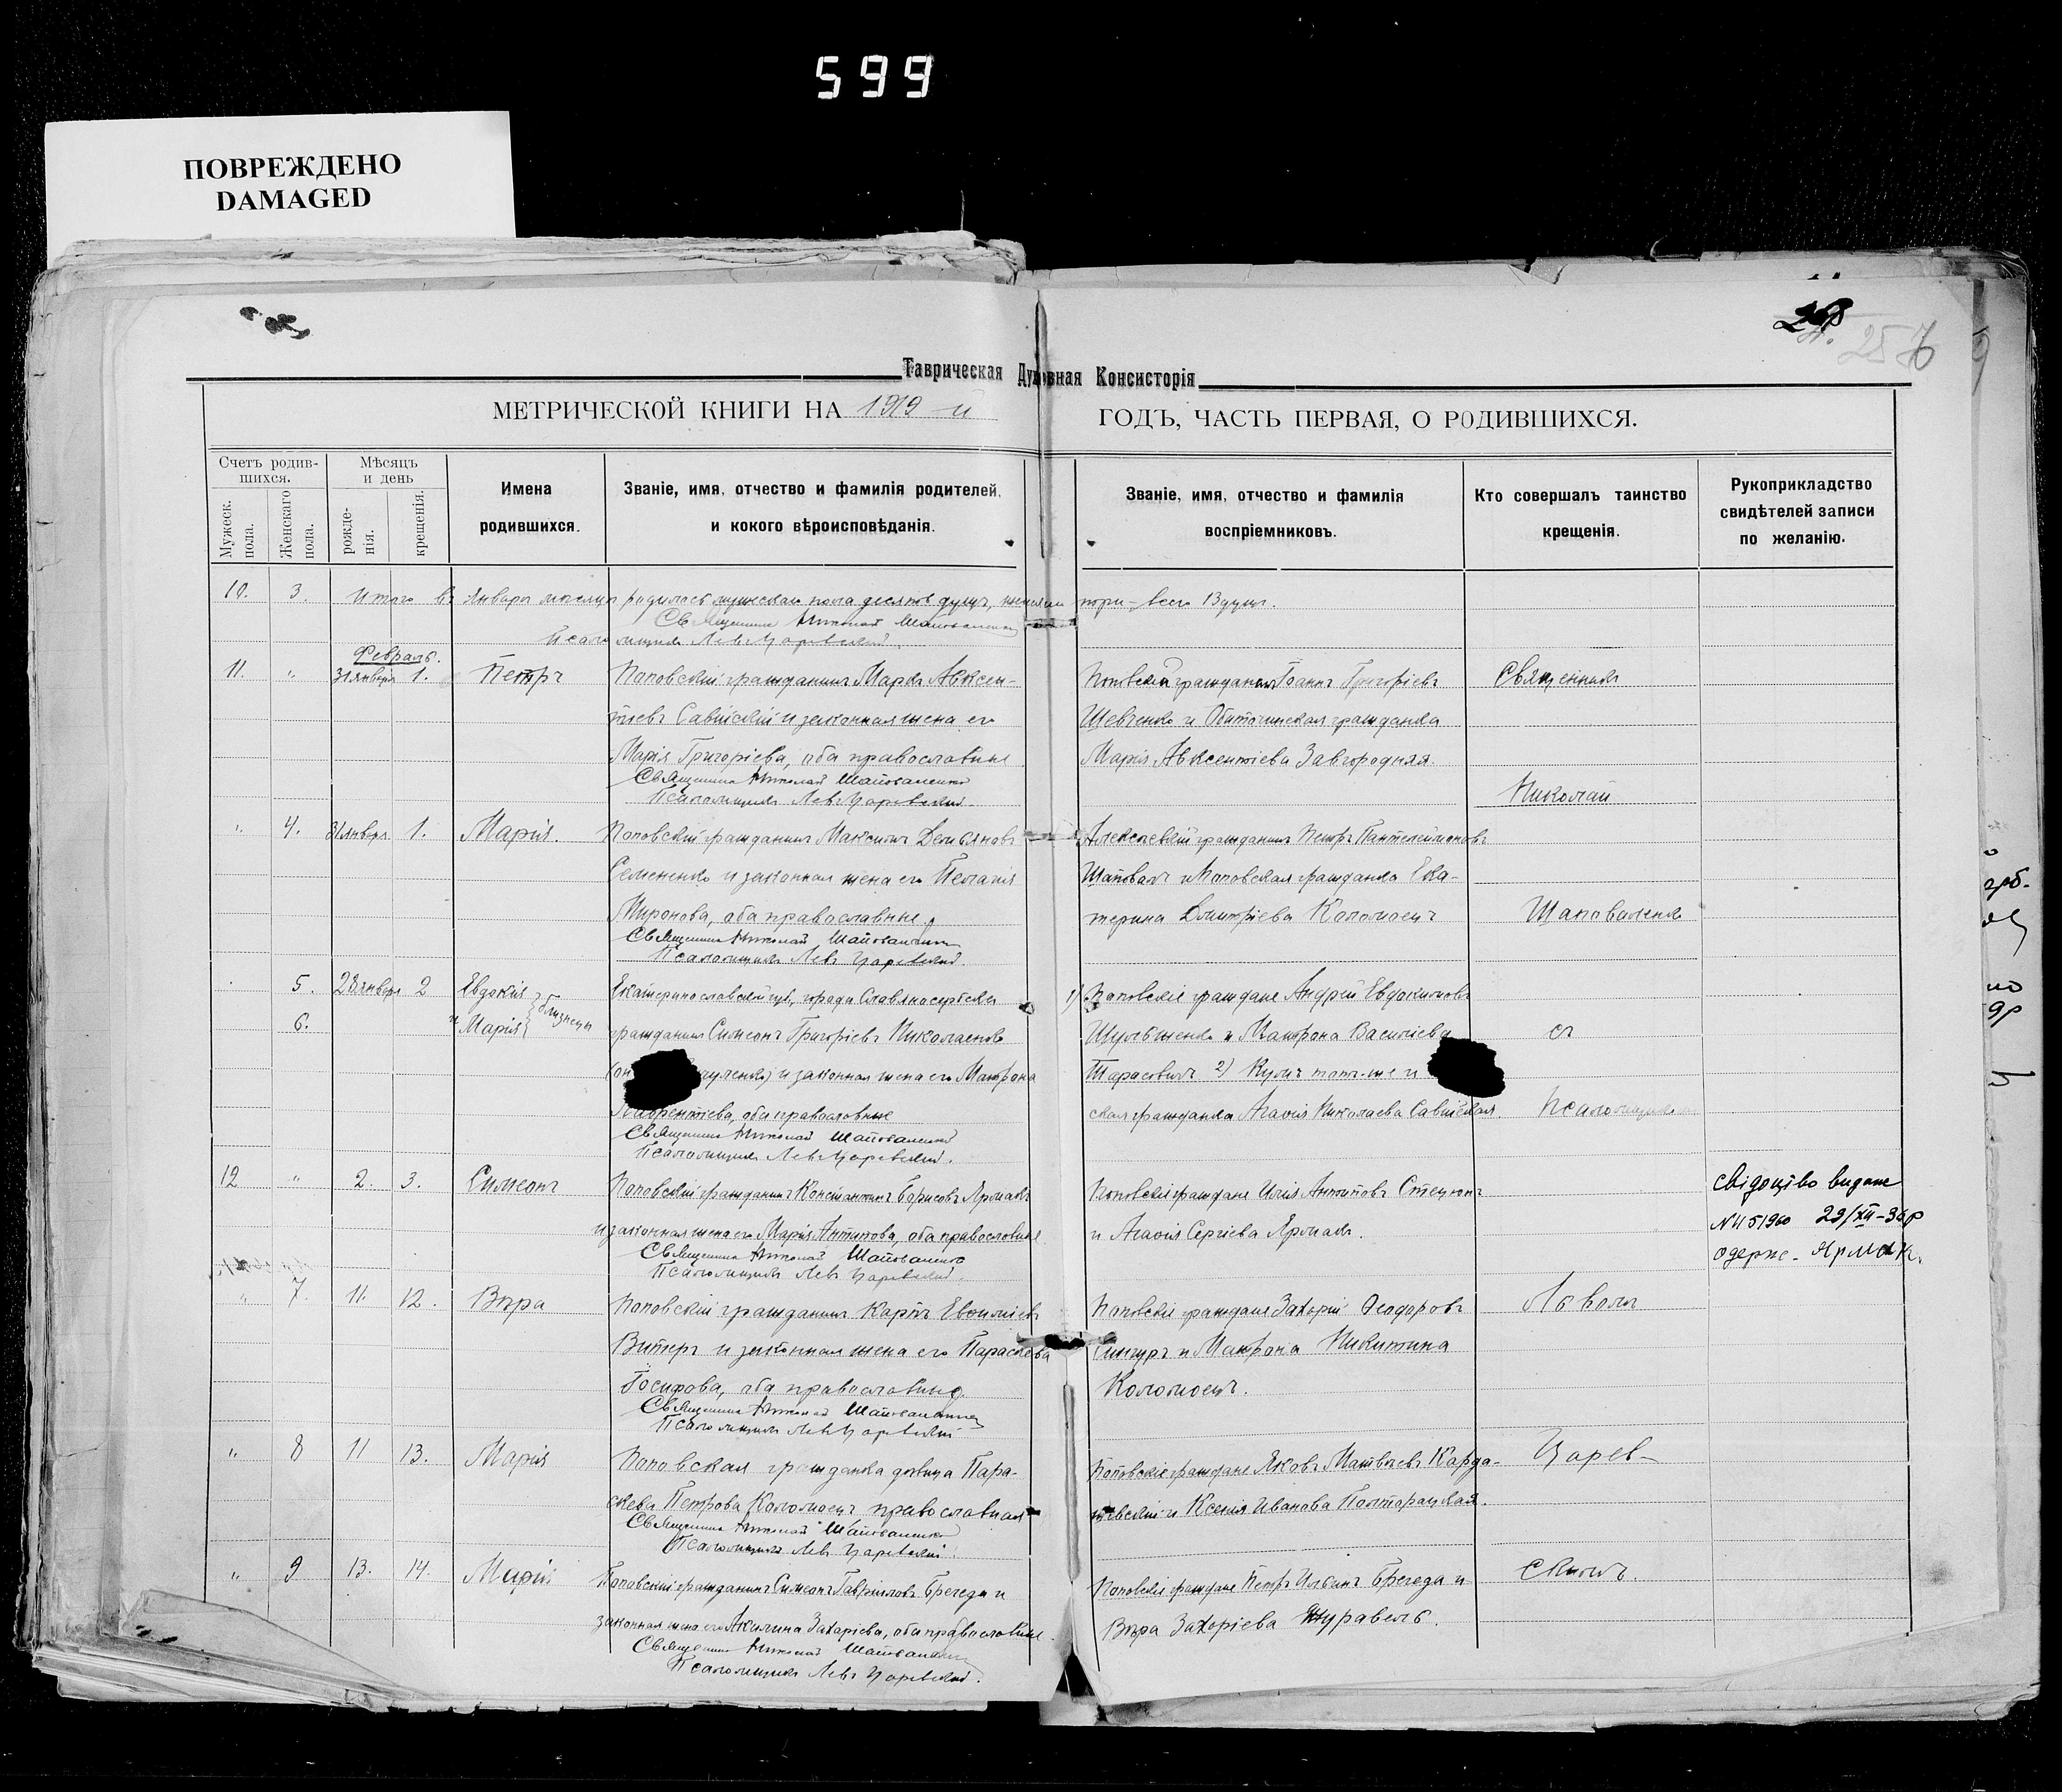 599
ПОВРЕЖДЕНО
DAMAGED
268
257
Таврическая Духовная Консисторія
МЕТРИЧЕСКОЙ КНИГИ НА 1919-й ГОДЪ, ЧАСТЬ ПЕРВАЯ, О РОДИВШИХСЯ.
Счетъ родив-
шихся.
Мужеск. пола.
Женскаго пола.
Мѣсяцъ
и день
рожде-
нія.
крещенія.
Имена
родившихся.
Званіе, имя, отчество и фамилія родителей,
и кокого вѣроисповѣданія.
Званіе, имя, отчество и фамилія
воспріемниковъ.
Кто совершалъ таинство
крещенія.
Рукоприкладство
свидѣтелей записи
по желанію.
10. 3. Итого въ Январѣ мѣсяцѣ родилось мужскаго пола десять душъ, женскаго три - всего 13 душъ.
Священникъ Николай Шаповаленко
Псаломщикъ Левъ Царевскій.
Февраль.
11. " 31 января 1. Петръ
Поповскій гражданинъ Маркъ Авксен-
тіевъ Савійскій и законная жена его
Марія Григоріева, оба православные
Священникъ Николай Шаповаленко
Псаломщикъ Левъ Царевскій.
Поповскій гражданинъ Іоаннъ Григоріевъ
Шевченко и Обиточинская гражданка
Марія Авксентіева Завгородняя.
Священникъ
Николай
" 4. 31 январ. 1. Марія.
Поповскій гражданинъ Максимъ Демьяновъ
Семененко и законная жена его Пелагія
Миронова, оба православные.
Священникъ Николай Шаповаленко
Псаломщикъ Левъ Царевскій.
Алексѣевскій гражданинъ Петръ Пантелеймоновъ
Шаповалъ и Поповская гражданка Ека-
терина Дмитріева Коломоецъ
Шаповаленко
5. 28 январ 2 Евдокія
6. и Марія } близнецы
Екатеринославской губ., города Славяносербска
гражданинъ Симеонъ Григоріевъ Николаенко
и законная жена его Матрона
Лаврентіева, оба православные
Священникъ Николай Шаповаленко
Псаломщикъ Левъ Царевскій.
1) Поповскіе граждане Андрей Евдокимовъ
Шульженко и Матрона Василіева
Тарасовичъ 2)
ская гражданка Агафія Николаева Савійская.
съ
Псаломщикомъ
12 " 2. 3. Симеонъ
Поповскій гражданинъ Константинъ Борисовъ Ярмакъ
и законная жена его Марія Антипова, оба православные.
Священникъ Николай Шаповаленко
Псаломщикъ Левъ Царевскій.
Поповскіе граждане Илія Антиповъ Стецюнъ
и Агафія Сергіева Ярмакъ.
свідоцтво видане
№ 451960 29/XII-36р
одерж. Ярмак.
" 7. 11. 12. Вѣра
Поповскій гражданинъ Карпъ Евфиміевъ
Витеръ и законная жена его Параскева
Іосифова, оба православные.
Священникъ Николай Шаповаленко
Псаломщикъ Левъ Царевскій
Поповскіе граждане Захарій Ѳеодоровъ
и Матрона Никитина
Коломоецъ.
Львомъ
" 8 11 13. Марія
Поповская гражданка дѣвица Пара-
скева Петрова Коломоецъ православная
Священникъ Николай Шаповаленко
Псаломщикъ Левъ Царевскій.
Поповскіе граждане Яковъ Матвѣевъ Карда-
шевскій и Ксенія Иванова Полторацкая.
Царев-
" 9 13. 14. Марія
Поповскій гражданинъ Симеонъ Гавріиловъ Брегеда и
законная жена его Акилина Захаріева, оба православные.
Священникъ Николай Шаповаленко
Псаломщикъ Левъ Царевскій.
Поповскіе граждане Петръ Ильинъ Брегеда и
Вѣра Захаріева Журавель.
скимъ.